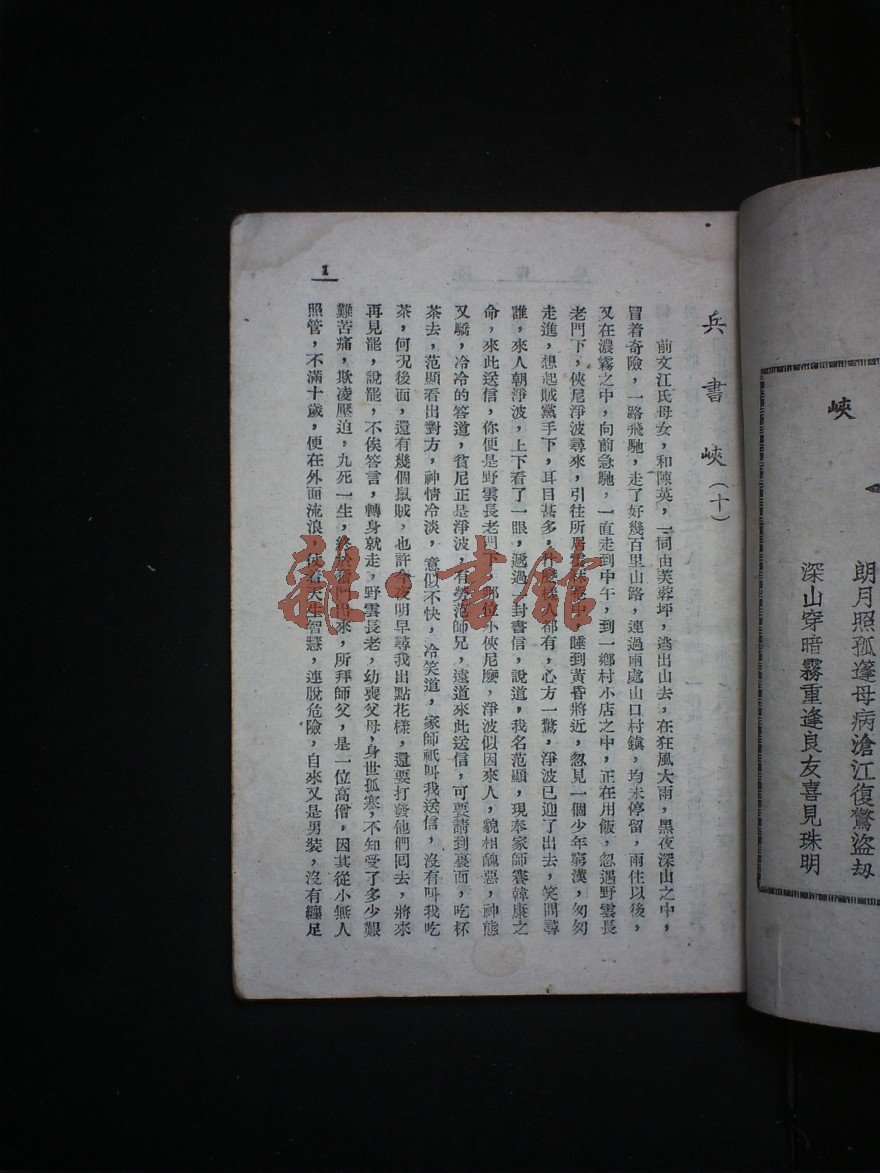 峽
朗月照孤篷母病滄江復驚盜刼
深山穿暗霧重逢良友喜見珠明
兵書峽（十）
前文江氏母女，和陳英，一同由芙蓉坪，逃出山去，在狂風大雨，黑夜深山之中，
冒着奇險，一路飛馳，走了好幾百里山路，連過兩處山口村鎮，均未停留，雨住以後，
又在濃霧之中，向前急馳，一直走到中午，到一鄉村小店之中，正在用飯，忽遇野雲長
老門下，俠尼淨波尋來，引往所居
中，睡到黃昏將近，忽見一個少年窮漢，匆匆
走進，想起賊黨手下，耳目甚多，什麼樣人都有，心方一驚，淨波已迎了出去，笑問尋
誰，來人朝淨波，上下看了一眼，遞過一封書信，說道，我名范顯，現奉家師賽韓康之
命，來此送信，你便是野雲長老門下，那位小俠尼麼，淨波似因來人，貌相醜惡，神態
又驕，冷冷的答道，貧尼正是淨波，有勞范師兄，遠道來此送信，可要請到裏面，吃杯
茶去，范顯看出對方，神情冷淡，意似不快，冷笑道，家師祇叫我送信，沒有叫我吃
茶，何況後面，還有幾個鼠賊，也許今夜明早尋我出點花樣，還要打發他們回去，將來
再見罷，說罷，不俟答言，轉身就走，野雲長老，幼喪父母，身世孤寒，不知受了多少艱
難苦痛，欺凌壓迫，九死一生，終於奮鬥出來，所拜師父，是一位高僧，因其從小無人
照管，不滿十歲，便在外面流浪，仗着天生智慧，連脫危險，自來又是男裝，沒有纏足
1
雜·書館